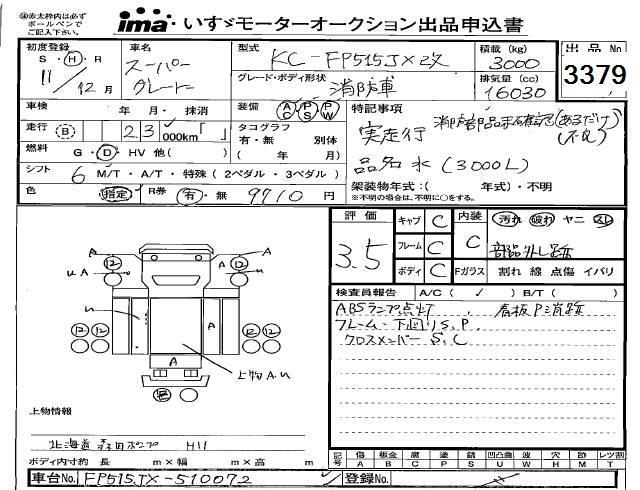 ※赤太枠内は必ず
ボールペンで
ご記入下さい。
ima いすゞモーターオークション出品申込書
初度登録
S・H・R
11/12月
車名
スーパーグレート
型式
KC-FP515JX改
積載(kg)
3000
出品No
3379
グレード・ボディ形状
消防車
排気量(cc)
16030
車検 年・月・抹消
装備 AC PS PW
特記事項
実走行
消防部品未確認(あるだけ)
(不良)
走行 (B) 23 000km「 」
タコグラフ
有・無 別体
( 年 月)
燃料 G・D・HV 他( )
品名 水(3000L)
シフト 6 M/T・A/T・特殊(2ペダル・3ペダル)
架装物年式:( 年式)・不明
※不明の場合は、不明に○をする。
色 指定 R券 有・無 9710 円
評価
3.5
キャブ C
フレーム C
ボディ C
内装 C
Fガラス
汚れ 破れ ヤニ スレ
部品外し跡
割れ 線 点傷 イバリ
検査員報告 A/C( ✓ ) B/T( )
ABSランプ点灯、看板P消跡
フレーム・下廻りS.P.
クロスメンバーS.C
A
A
12
12
u A
A
u
A
12
12
12
12
A
上物A.u
上物情報
北海道 森田ポンプ H11
ボディ内寸約 長 m×幅 m×高 m
記号 傷 板金 腐 塗 錆 凹凸曲 波 穴 跡 レツ割
A B C P S U W H M T
車台No. FP515JX-510072
登録No.